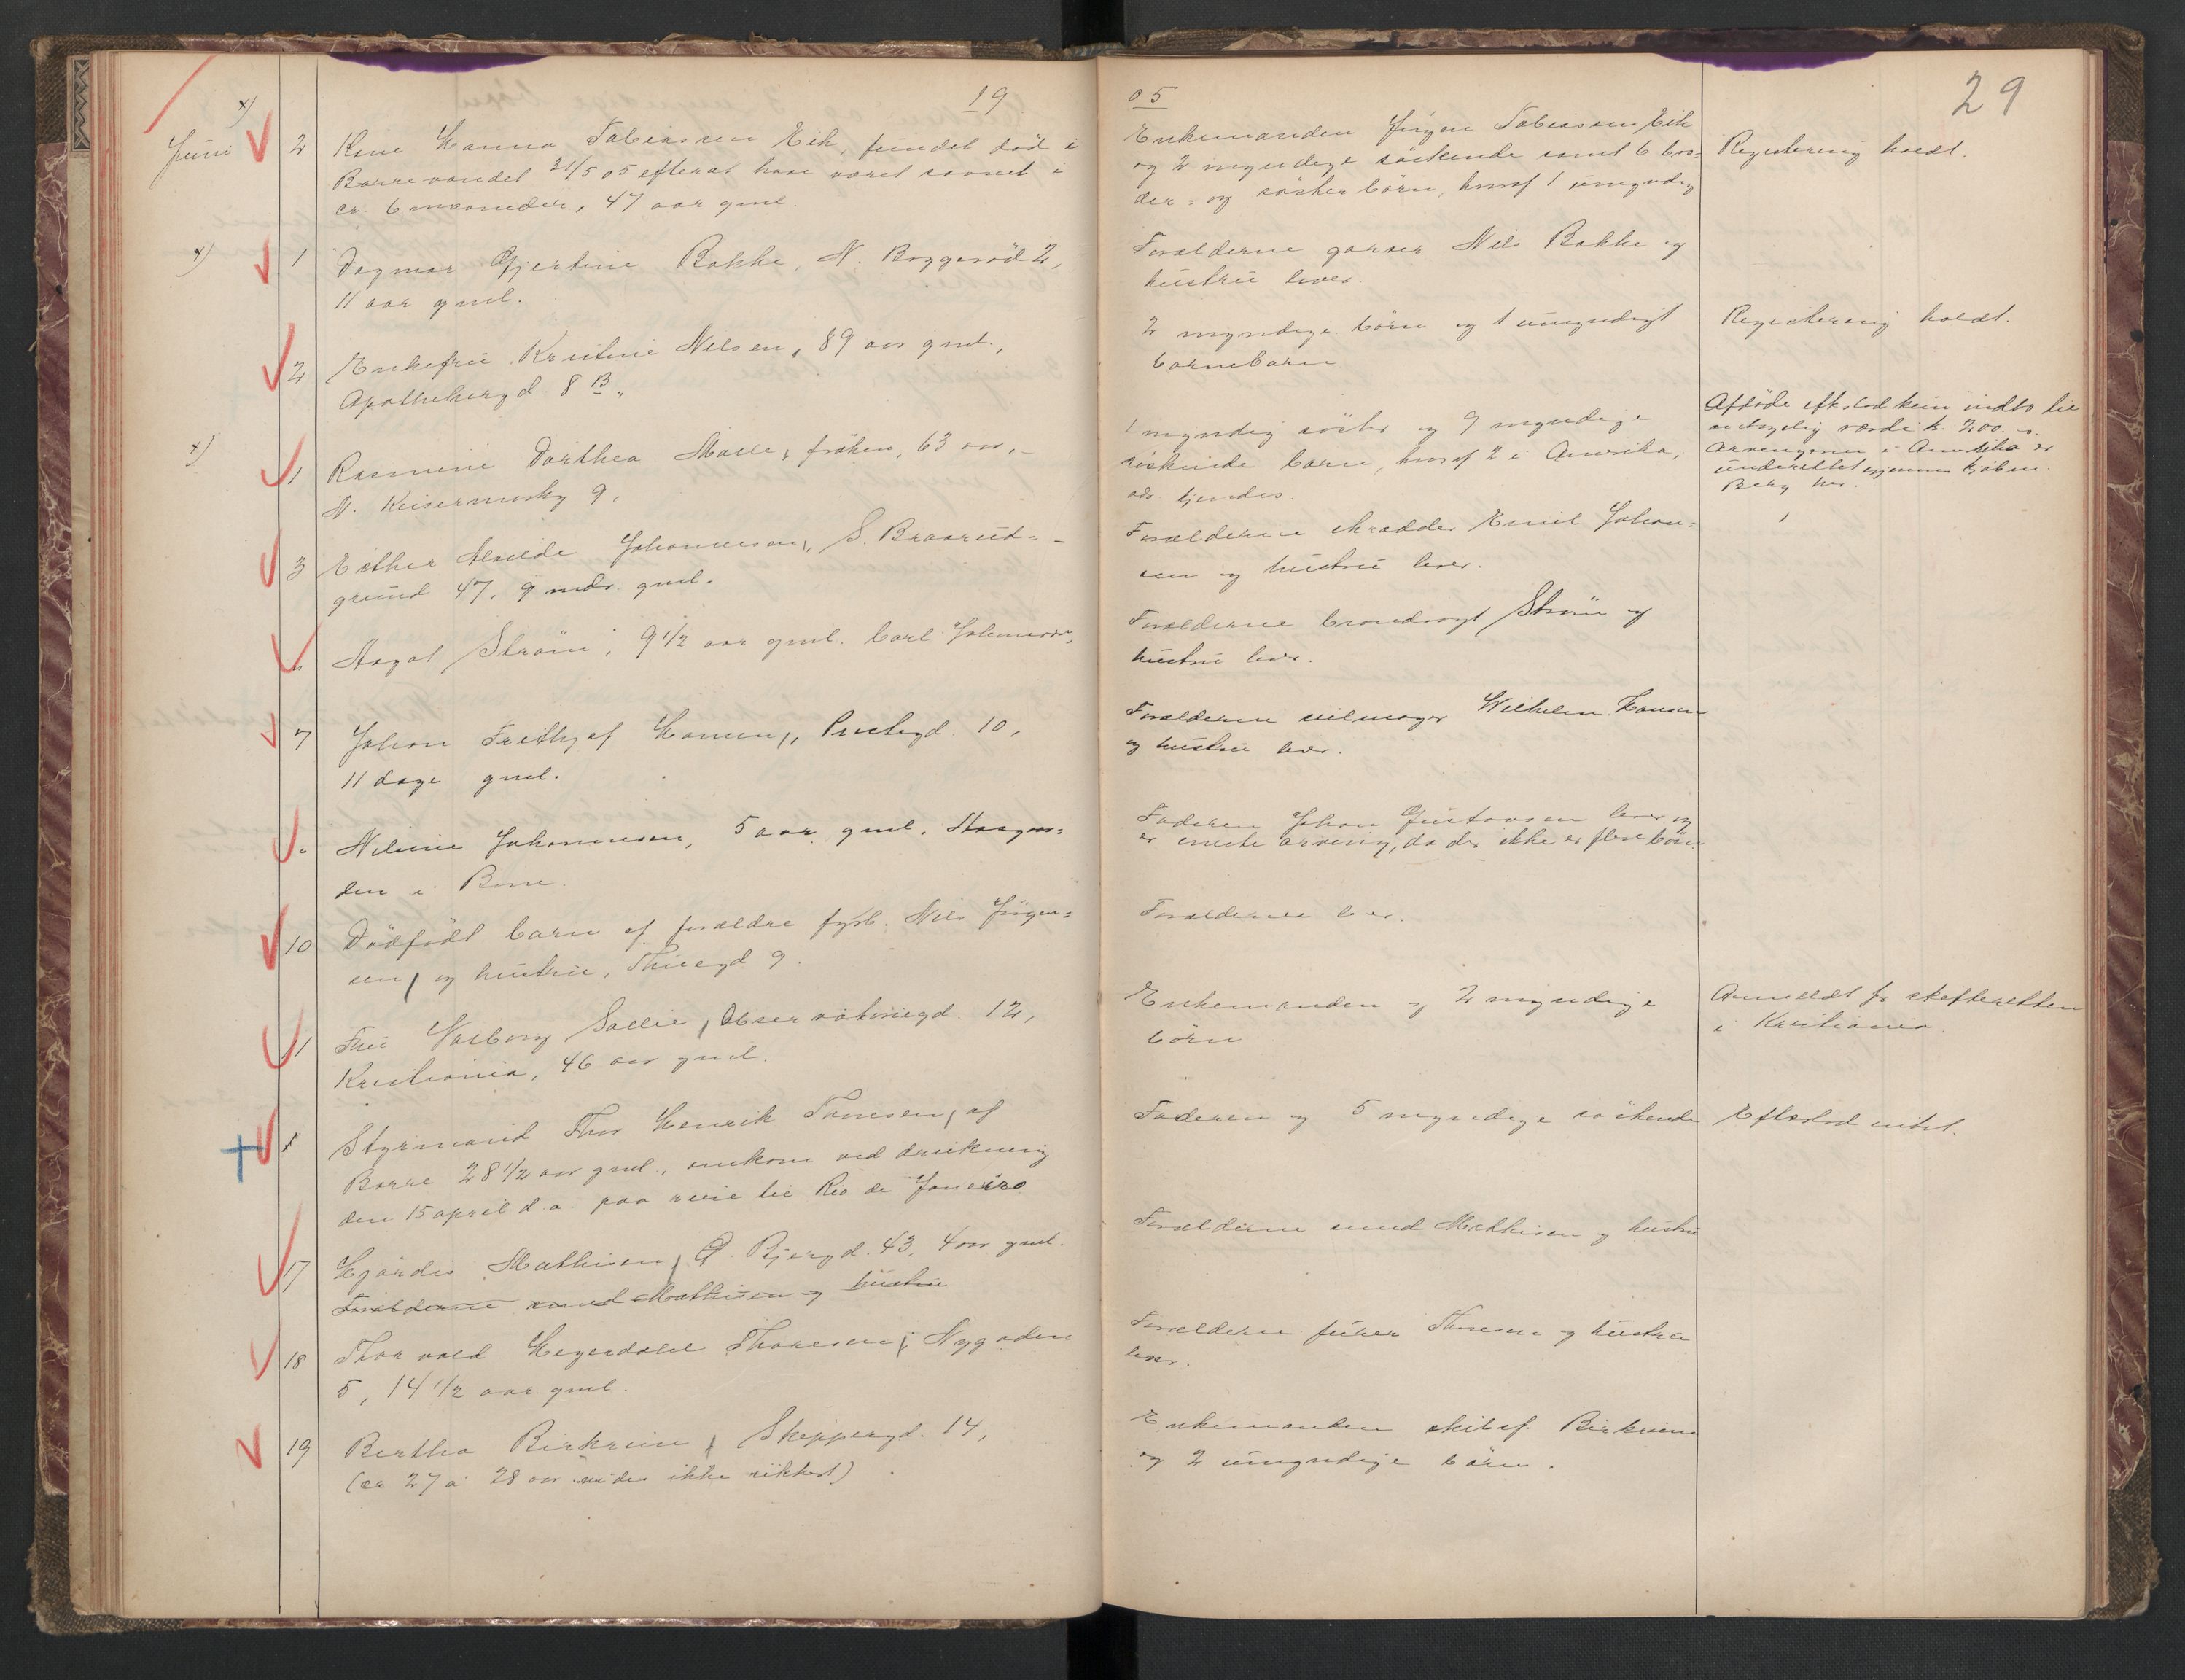 19
05
29
x)
Juni
2 Kone Hanna Tobiassen Eik, fundet död i
Borrevandet 31/5 05 efterat have været savnet i
ca. 6 maaneder, 47 aar gml.
Enkemanden Jørgen Tobiassen Eik
og 2 myndige söskende samt 6 bro=
der= og sösterbörn, hvoraf 1 umyndig
Registrering holdt.
x)
1 Dagmar Gjertine Bakke, N. Baggeröd 2,
11 aar gml.
Forælderne garver Nils Bakke og
hustru lever.
2 Enkefru Kristine Nilsen, 89 aar gml.,
Apothekergd 8 B.
2 myndige börn og 1 umyndigt
barnebarn
Registrering holdt.
x)
1 Rasmine Dorthea Malle, fröken, 63 aar,
N. Keisermarkg 9,
1 myndig söster og 9 myndige
söskende barn, hvoraf 2 i Amerika,
adr. kjendes.
Afdöde efterlod kun indbo til
antagelig værdi k. 200.
Arvingerne i Amerika er
underrettet gjennem kjöbm.
Berg her.
3 Esther Alvilde Johannesen, S. Braarud=
grund 47, 9 mdr. gml.
Forælderne skrædder Emil Johan=
sen og hustru lever.
" Aagot Ström, 9 1/2 aar gml. Carl Johansv.
Forælderne brandvogt Ström og
hustru lever.
7 Johan Frithjof Hansen, Prestegd. 10,
11 dage gml.
Forælderne seilmager Wilhelm Hansen
og hustru lever.
" Niline Johannesen, 5 aar gml.
den i Borre.
Faderen Johan Gustavsen lever og
er eneste arving, da der ikke er flere börn.
10 Dödfödt barn af forældre fyrb. Nils Jörgen=
sen og hustru, Thuegd 9.
Forælderne lever.
11 Fru Valborg Sollie, Observatoriegd. 12,
Kristiania, 46 aar gml.
Enkemanden og 2 myndige
börn
Anmeldt fra skifteretten
i Kristiania.
Styrmand Thor Henrik Tonesen, af
Borre 28 1/2 aar gml., omkom ved drukning
den 15 april d.a. paa reise til Rio de Janeiro
Faderen og 5 myndige söskende
Efterlod intet.
17 Hjördis Mathisen, Ö. Bjergd. 43, 4 aar gml.
Forælderne smed Mathisen og hustru
Forælderne smed Mathisen og hustru
18 Thorvald Heyerdahl Thoresen, Nygaden
5, 14 1/2 aar gml.
Forælderne furer Thoresen og hustru
lever.
19 Bertha Birkrem, Skippergd. 14,
(ca 27 a 28 aar vides ikke sikkert)
Enkemanden skibsf. Birkrem
og 2 umyndige börn.